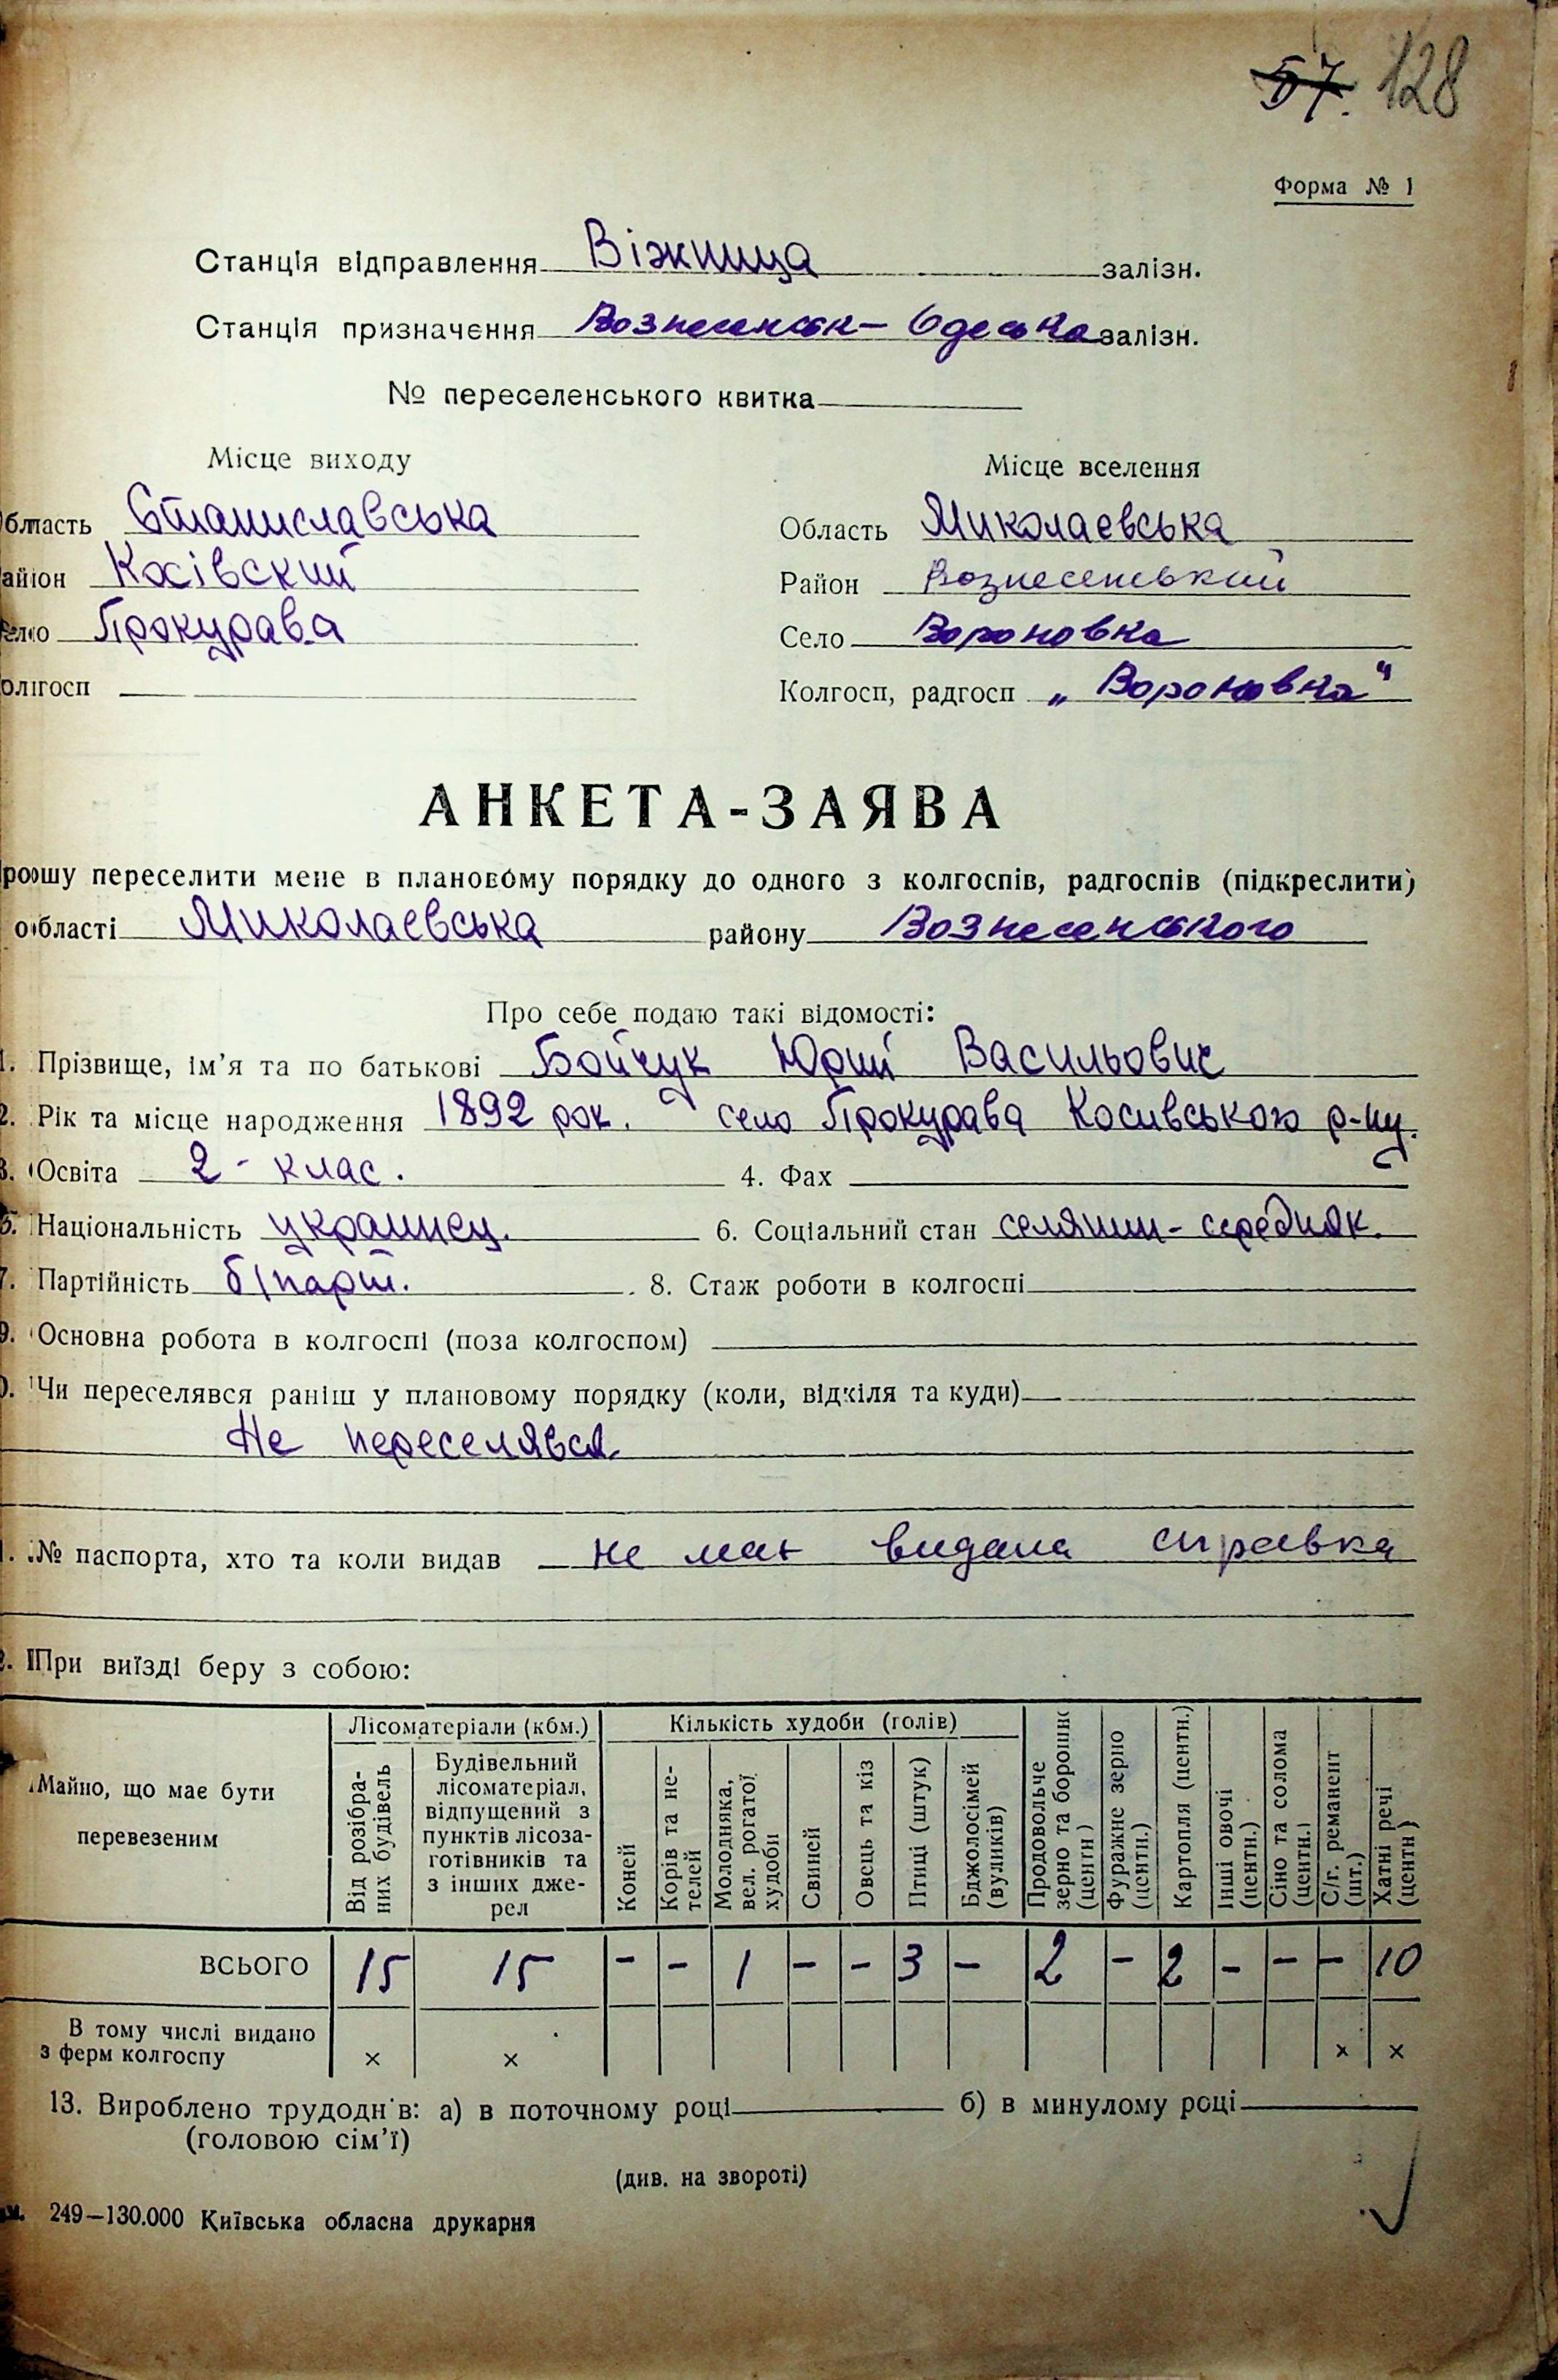 57. 128
Форма № 1
Станція відправлення Віжница залізн.
Станція призначення Вознесенськ - Одеська залізн.
№ переселенського квитка
Місце виходу
Місце вселення
Область Станиславська
Область Миколаевська
Район Косівский
Район Вознесенський
Село Прокурава
Село Вороновка
Колгосп
Колгосп, радгосп „Вороновка"
АНКЕТА-ЗАЯВА
Прошу переселити мене в плановому порядку до одного з колгоспів, радгоспів (підкреслити)
області Миколаевська району Вознесенського
Про себе подаю такі відомості:
1. Прізвище, ім'я та по батькові Бойчук Юрий Васильович
2. Рік та місце народження 1892 рок. село Прокурава Косивського р-ну.
3. Освіта 2 - клас. 4. Фах
5. Національність украинец. 6. Соціальний стан селянин - середняк.
7. Партійність б/парт. 8. Стаж роботи в колгоспі
9. Основна робота в колгоспі (поза колгоспом)
0. Чи переселявся раніш у плановому порядку (коли, відкіля та куди)
Не переселявся
. № паспорта, хто та коли видав не має видана справка
2. При виїзді беру з собою:
Майно, що має бути
перевезеним
Лісоматеріали (кбм.)
Від розібра-
них будівель
Будівельний
лісоматеріал,
відпущений з
пунктів лісоза-
готівників та
з інших дже-
рел
Кількість худоби (голів)
Коней
Корів та не-
телей
Молодняка,
вел. рогатої
худоби
Свиней
Овець та кіз
Птиці (штук)
Бджолосімей
(вуликів)
Продовольче
зерно та борошно
(центн)
Фуражне зерно
(центн.)
Картопля (центн.)
Інші овочі
(центн.)
Сіно та солома
(центн.)
С/г. реманент
(шт.)
Хатні речі
(центн)
ВСЬОГО 15 15 - - 1 - - 3 - 2 - 2 - - - 10
В тому числі видано
з ферм колгоспу × × × ×
13. Вироблено трудоднів: а) в поточному році б) в минулому році
(головою сім'ї)
(див. на звороті)
м. 249—130.000 Київська обласна друкарня